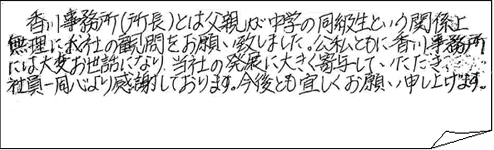 香川事務所(所長)とは父親が中学の同級生という関係上
無理に弊社の顧問をお願い致しました。公私ともに香川事務所
には大変お世話になり、当社の発展に大きく寄与して、いただき
社員一同心より感謝しております。今後とも宜しくお願い申し上げます。